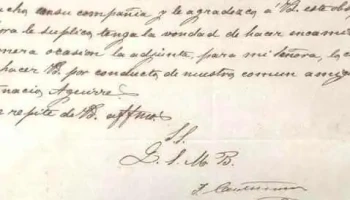 cho consu compañia y le agradezco á B. este ob
ora le suplico tenga la vondad de hacer encami
mera ocasion la adjunta, para mi señora, lo c
hacer B. por conducto de nuestro comun amig
nacio Aguirre.
e repite de B. affmo.
S.S.
Q. S. M. B.